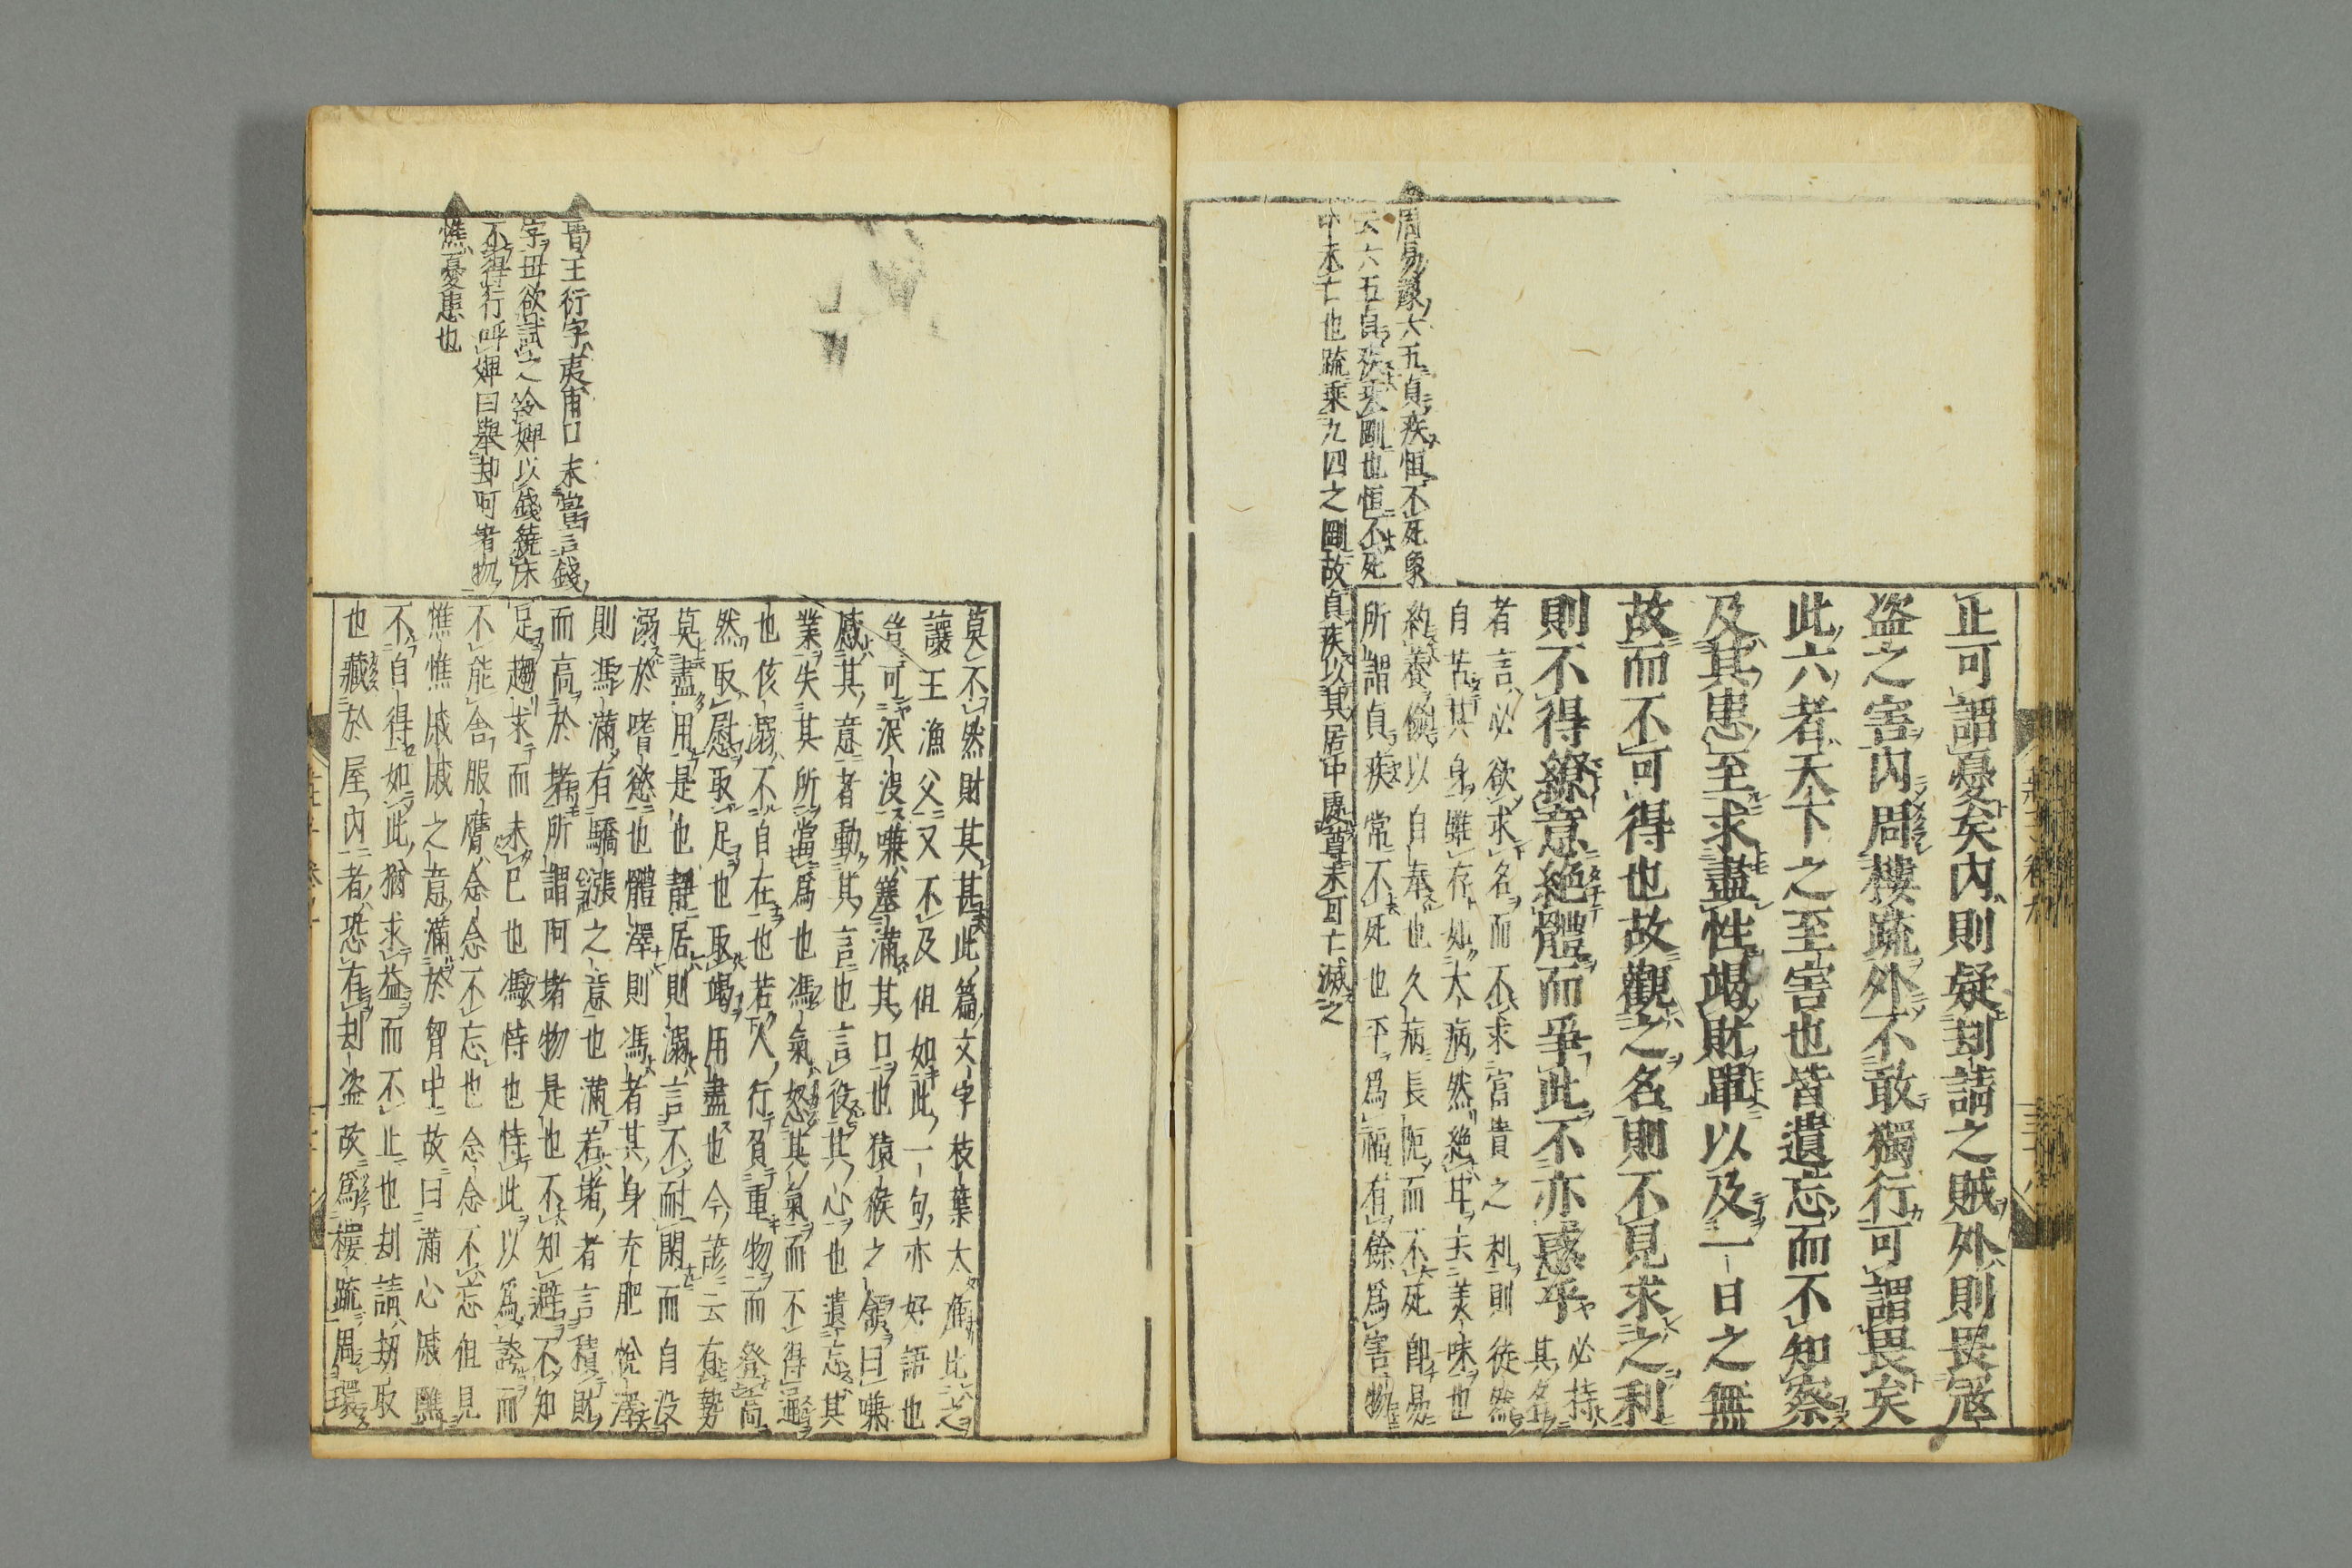 周易豫六五貞疾恒不死象
云六五貞疾乘剛也恒不死
中未亡也疏乘九四之剛故貞疾以其居中處尊未可亡滅之
止可謂憂矣內則疑刦請之賊外則畏寇
盜之害內周樓疏外不敢獨行可謂畏矣
此六者天下之至害也皆遺忘而不知察
及其患至求盡性竭財單以及一日之無
故而不可得也故觀之名則不見求之利
則不得繚意絕體而爭此不亦惑乎必持其名
者言必欲求名而不求富貴之利則徒然
自苦其身雖存如大病然絕甘去美味也
約養儉以自奉也久病長阨而不死即易
所謂貞疾常不死也平為福有餘為害物
晉王衍字夷甫口未嘗言錢
字毋欲試之令婢以錢繞床
不得行呼婢曰舉却阿堵物
憔憂患也
莫不然財其甚此篇文字枝葉太麁比之
讓王漁父又不及但如此一句亦好語也
豈可泯沒嗛塞滿其口也猿猴之頷曰嗛
感其意者動其言也言役其心也遺忘其
業失其所當爲也馮氣怒其氣而不得通
也侅溺不自在也若人行負重物而登高
然取慰取足也取竭用盡也今諺云有勢
莫盡用是也靜居則溺言不耐閑而自沒
溺於嗜慾也體澤則馮者其身充肥悅澤
則馮滿有驕漲之意也滿若堵者言積財
而高於堵所謂阿堵物是也不知避不知
足趨求而未已也馮恃也恃此以爲誇而
不能舍服膺念念不忘也念念不忘但見
憔憔戚戚之意滿於胷中故曰滿心戚醮
不自得如此猶求益而不止也刦請刼取
也藏於屋內者恐有刦盜故爲樓疏周環